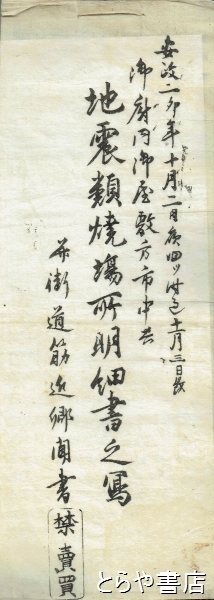 安政二卯年十月二日夜四ツ時ゟ十一月三日夜
御府内御屋敷方市中共
地震類焼場所明細書之写
并街道筋近郷聞書
禁賣買
とらや書店